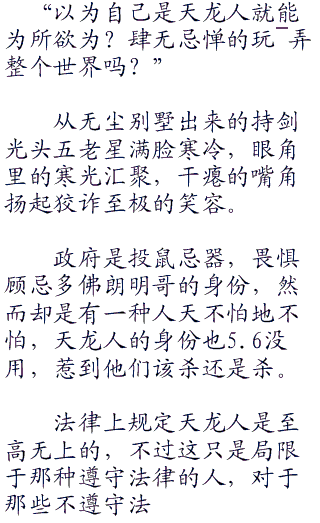 “以为自己是天龙人就能
为所欲为？肆无忌惮的玩¯弄
整个世界吗？”
从无尘别墅出来的持剑
光头五老星满脸寒冷，眼角
里的寒光汇聚，干瘪的嘴角
扬起狡诈至极的笑容。
政府是投鼠忌器，畏惧
顾忌多佛朗明哥的身份，然
而却是有一种人天不怕地不
怕，天龙人的身份也5.6没
用，惹到他们该杀还是杀。
法律上规定天龙人是至
高无上的，不过这只是局限
于那种遵守法律的人，对于
那些不遵守法